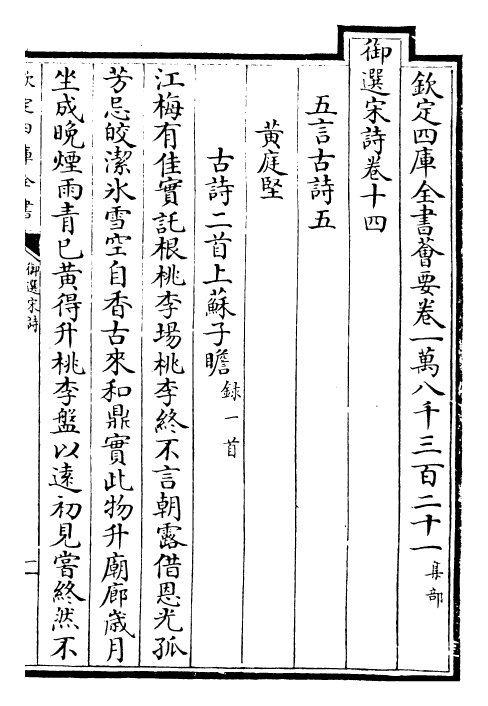 欽定四庫全書薈要卷一萬八千三百二十一集部
御選宋詩卷十四
五言古詩五
黃庭堅
古詩二首上蘇子瞻錄一首
江梅有佳實託根桃李場桃李終不言朝露借恩光孤
芳忌皎潔氷雪空自香古來和鼎實此物升廟廊歲月
坐成晚煙雨青已黃得升桃李盤以逺初見嘗終然不
欽定四庫全書
御選宋詩